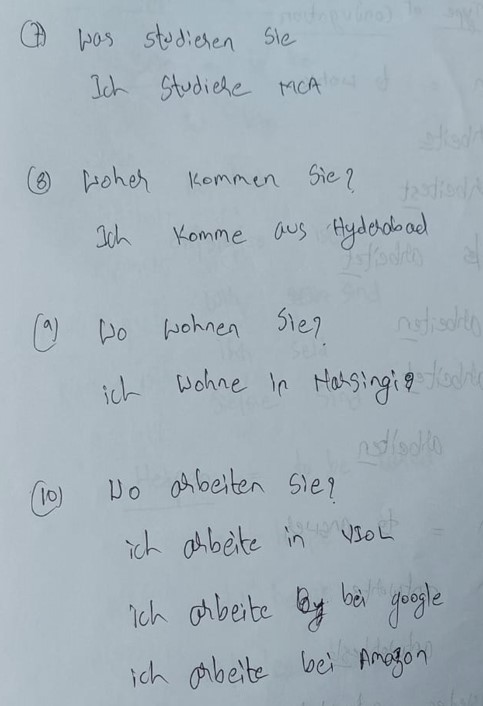 (7) Was studieren Sie
Ich Studiere MCA
(8) Woher Kommen Sie?
Ich Komme aus Hyderabad
(9) Wo wohnen Sie?
ich Wohne in Narsingi
(10) Wo arbeiten Sie?
ich arbeite in VIOL
ich arbeite bei google
ich arbeite bei Amazon